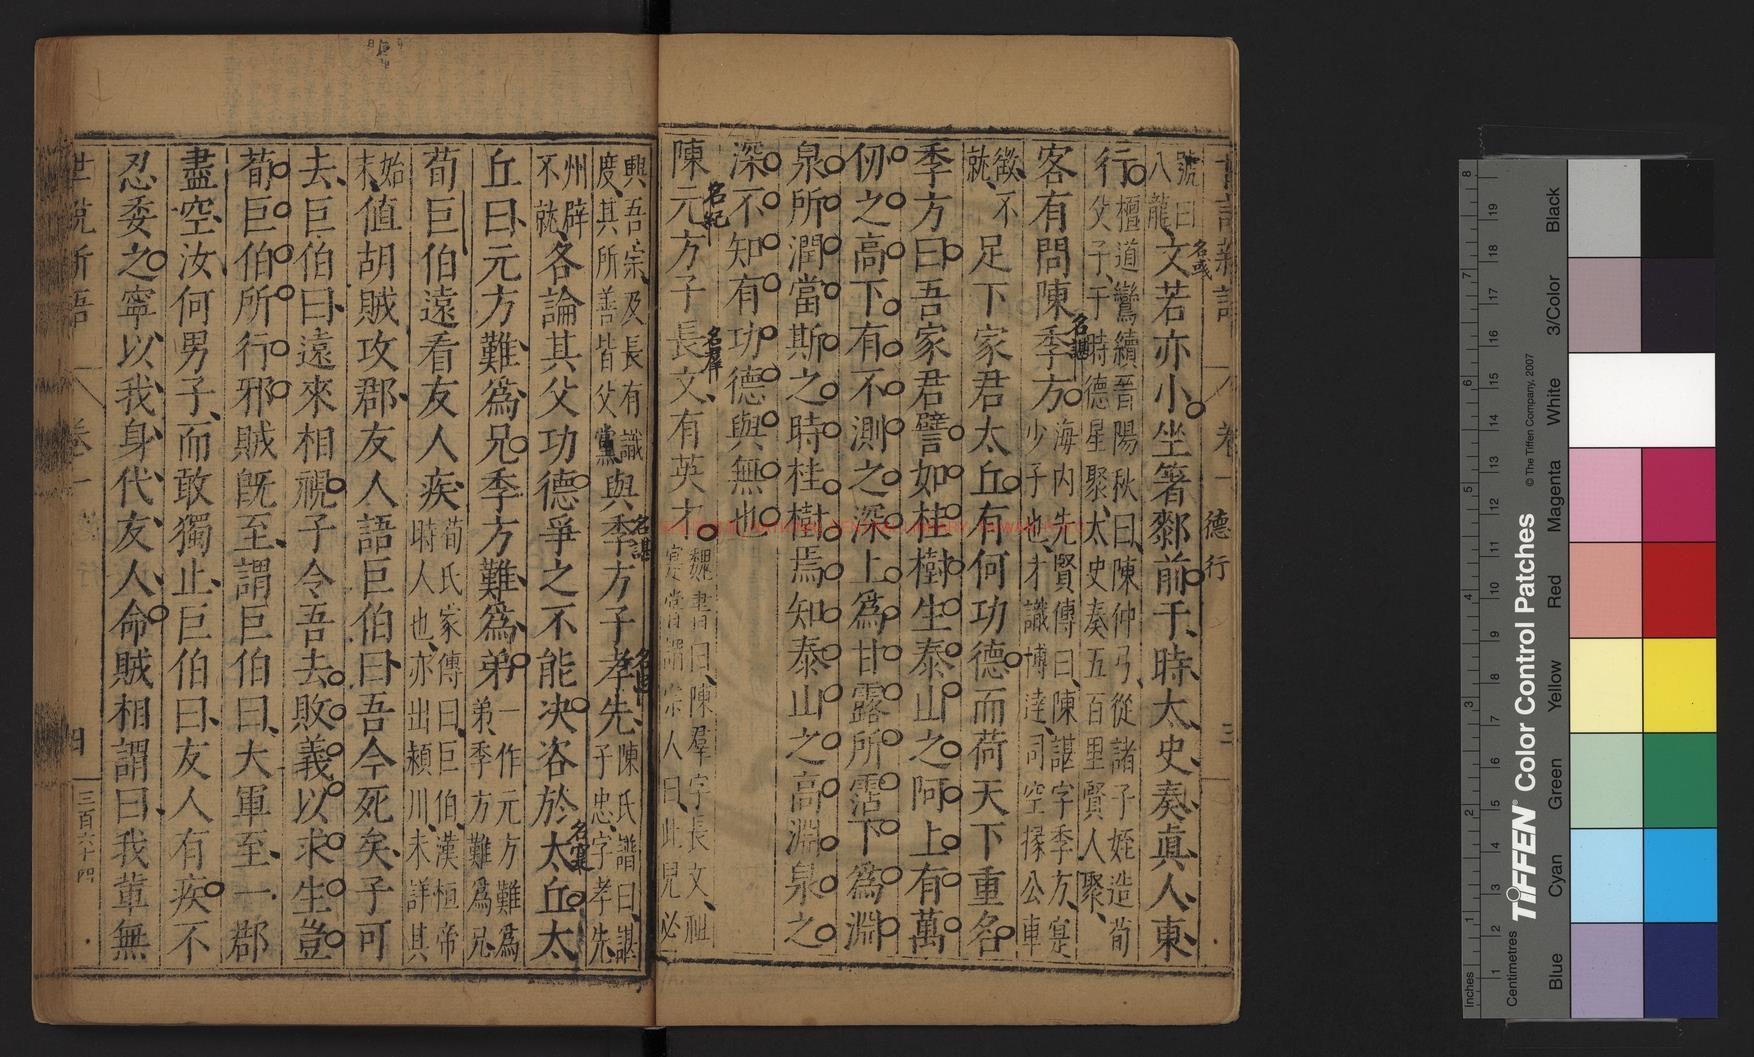 號曰
八龍
文若亦小坐箸䣛前于時太史奏眞人東
行
檀道鸞續晉陽秋曰陳仲弓從諸子姪造荀
父子于時德星聚太史奏五百里賢人聚
客有問陳季方
海内先賢傳曰陳諶字季方寔
少子也才識博達司空掾公車
徵不
就
足下家君太丘有何功德而荷天下重名
季方曰吾家君譬如桂樹生泰山之阿上有萬
仞之高下有不測之深上爲甘露所霑下爲淵
泉所潤當斯之時桂樹焉知泰山之高淵泉之
深不知有功德與無也
陳元方子長文有英才
魏書曰陳羣字長文祖
寔嘗謂宗人曰此兒必
興吾宗及長有識
度其所善皆父黨
與季方子孝先
陳氏譜曰諶
子忠字孝先
州辟
不就
各論其父功德爭之不能决咨於太丘太
丘曰元方難爲兄季方難爲弟
一作元方難爲
弟季方難爲兄
荀巨伯遠看友人疾
荀氏家傳曰巨伯漢恒帝
時人也亦出潁川未詳其
始
末
值胡賊攻郡友人語巨伯曰吾今死矣子可
去巨伯曰遠來相視子令吾去敗義以求生豈
荀巨伯所行邪賊旣至謂巨伯曰大軍至一郡
盡空汝何男子而敢獨止巨伯曰友人有疾不
忍委之寧以我身代友人命賊相謂曰我輩無
世說新語
卷一
德行
三
名彧
名諶
名紀
名羣
名諶
名寔
世說新語
卷一
四
三百六十四
Inches
Centimetres
TIFFEN® Color Control Patches
© The Tiffen Company, 2007
Blue
Cyan
Green
Yellow
Red
Magenta
White
3/Color
Black